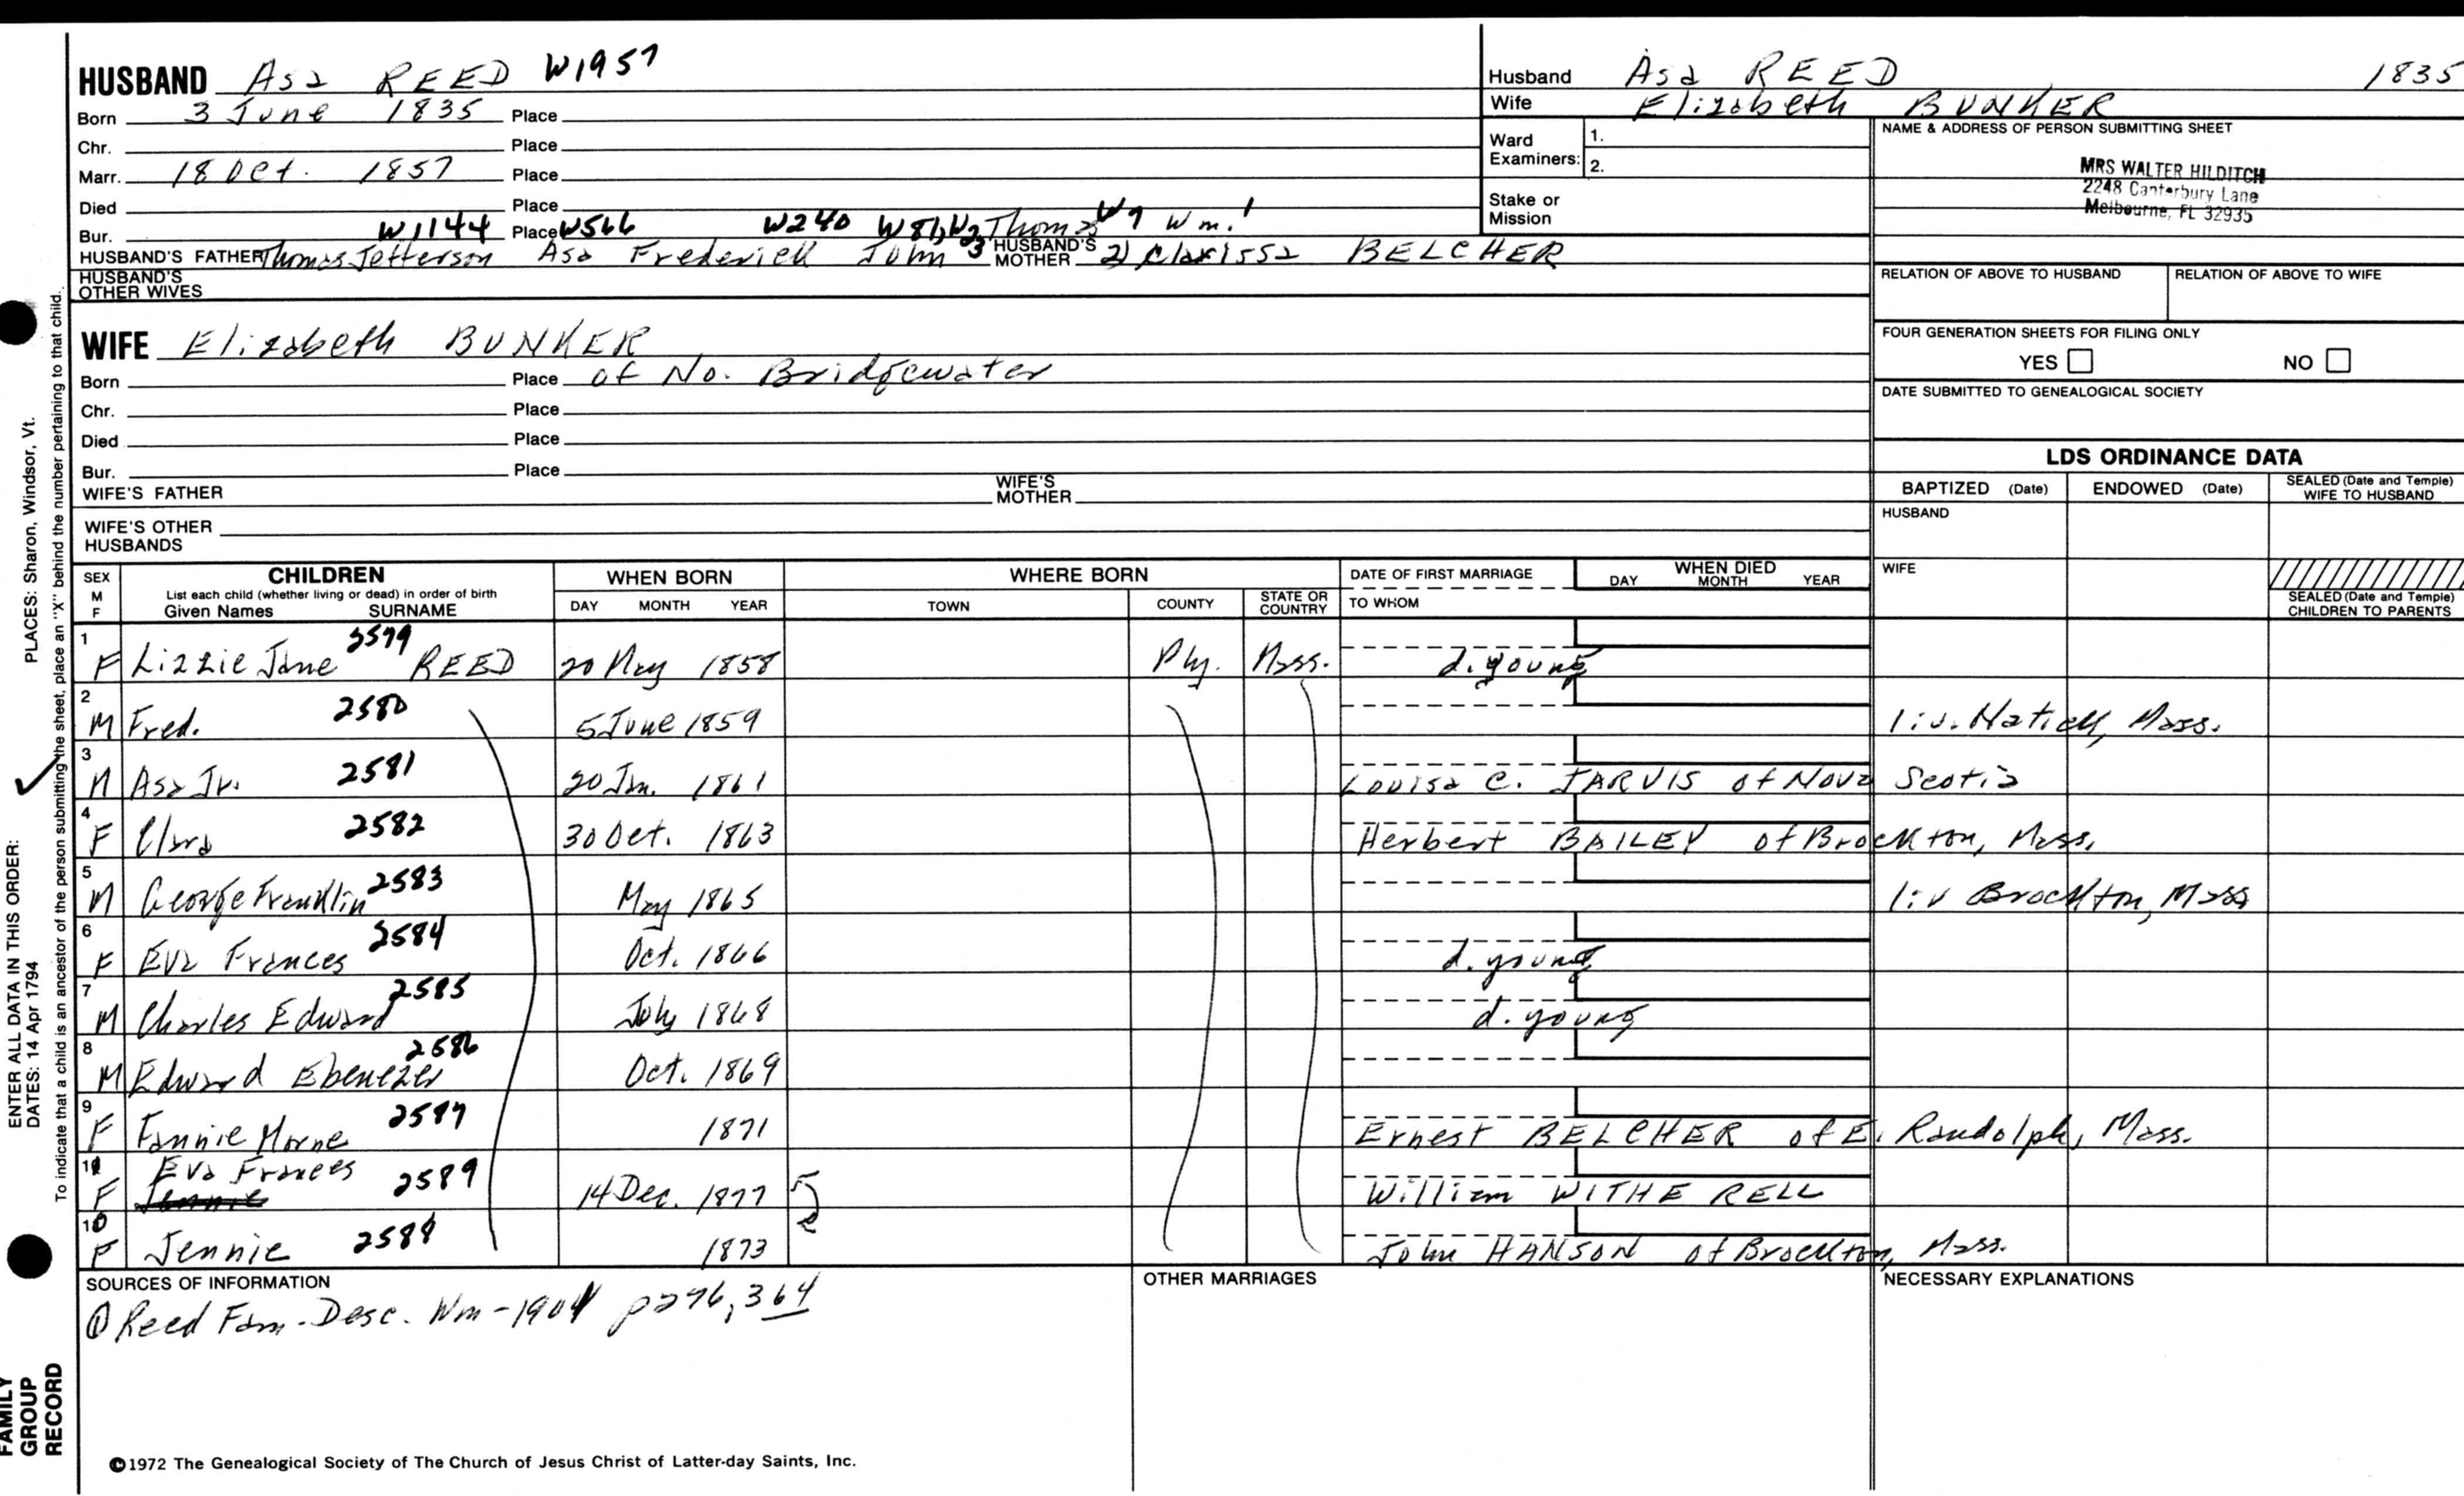 HUSBAND Asa REED W1957
Born 3 June 1835 Place
Chr. Place
Marr. 18 Oct. 1857 Place
Died Place
Bur. W1144 Place W566 W240 W81, W3 Thomas W7 Wm. 1
HUSBAND'S FATHER Thomas Jefferson Asa Frederick John 3 HUSBAND'S MOTHER 2) Clarissa BELCHER
HUSBAND'S OTHER WIVES
WIFE Elizabeth BUNKER
Born Place of No. Bridgewater
Chr. Place
Died Place
Bur. Place
WIFE'S FATHER WIFE'S MOTHER
WIFE'S OTHER HUSBANDS
Husband Asa REED 1835
Wife Elizabeth BUNKER
Ward Examiners: 1.
2.
Stake or Mission
NAME & ADDRESS OF PERSON SUBMITTING SHEET
MRS WALTER HILDITCH
2248 Canterbury Lane
Melbourne, FL 32935
RELATION OF ABOVE TO HUSBAND RELATION OF ABOVE TO WIFE
FOUR GENERATION SHEETS FOR FILING ONLY
YES NO
DATE SUBMITTED TO GENEALOGICAL SOCIETY
LDS ORDINANCE DATA
BAPTIZED (Date) ENDOWED (Date) SEALED (Date and Temple) WIFE TO HUSBAND
HUSBAND
WIFE
SEALED (Date and Temple) CHILDREN TO PARENTS
SEX M F CHILDREN List each child (whether living or dead) in order of birth Given Names SURNAME WHEN BORN DAY MONTH YEAR WHERE BORN TOWN COUNTY STATE OR COUNTRY DATE OF FIRST MARRIAGE TO WHOM WHEN DIED DAY MONTH YEAR
1 F Lizzie Jane 2579 REED 20 May 1858 Ply. Mass. d. young
2 M Fred. 2580 5 June 1859 liv. Natick, Mass.
3 M Asa Jr. 2581 20 Jan. 1861 Louisa C. JARVIS of Nova Scotia
4 F Clara 2582 30 Oct. 1863 Herbert BAILEY of Brockton, Mass.
5 M George Franklin 2583 May 1865 liv Brockton, Mass
6 F Eva Frances 2584 Oct. 1866 d. young
7 M Charles Edward 2585 July 1868 d. young
8 M Edward Ebenezer 2586 Oct. 1869
9 F Fannie Horne 2587 1871 Ernest BELCHER of E. Randolph, Mass.
11 F Eva Frances Jennie 2589 14 Dec. 1877 William WITHERELL
10 F Jennie 2588 1873 John HANSON of Brockton, Mass.
SOURCES OF INFORMATION
① Reed Fam. - Desc. Wm - 1901 p276, 364
OTHER MARRIAGES
NECESSARY EXPLANATIONS
©1972 The Genealogical Society of The Church of Jesus Christ of Latter-day Saints, Inc.
ENTER ALL DATA IN THIS ORDER:
DATES: 14 Apr 1794 PLACES: Sharon, Windsor, Vt.
To indicate that a child is an ancestor of the person submitting the sheet, place an "X" behind the number pertaining to that child.
FAMILY
GROUP
RECORD